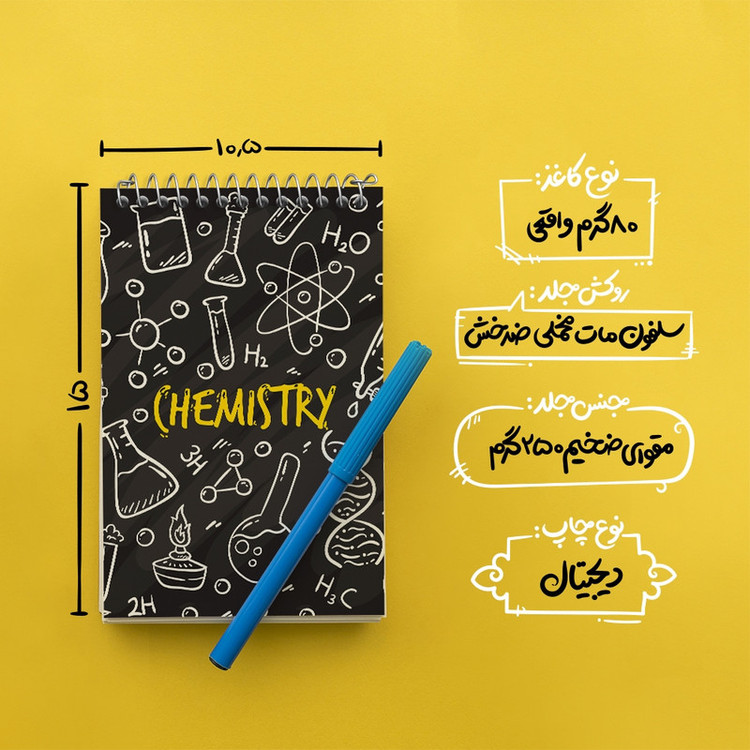 ۱۰,۵
۱۵
H₂O
H₂
CHEMISTRY
3H
H₃C
2H
نوع کاغذ:
۸۰ گرم واقعی
روکش جلد:
سلفون مات مخملی ضدخش
جنس جلد:
مقوای ضخیم ۲۵۰ گرم
نوع چاپ:
دیجیتال